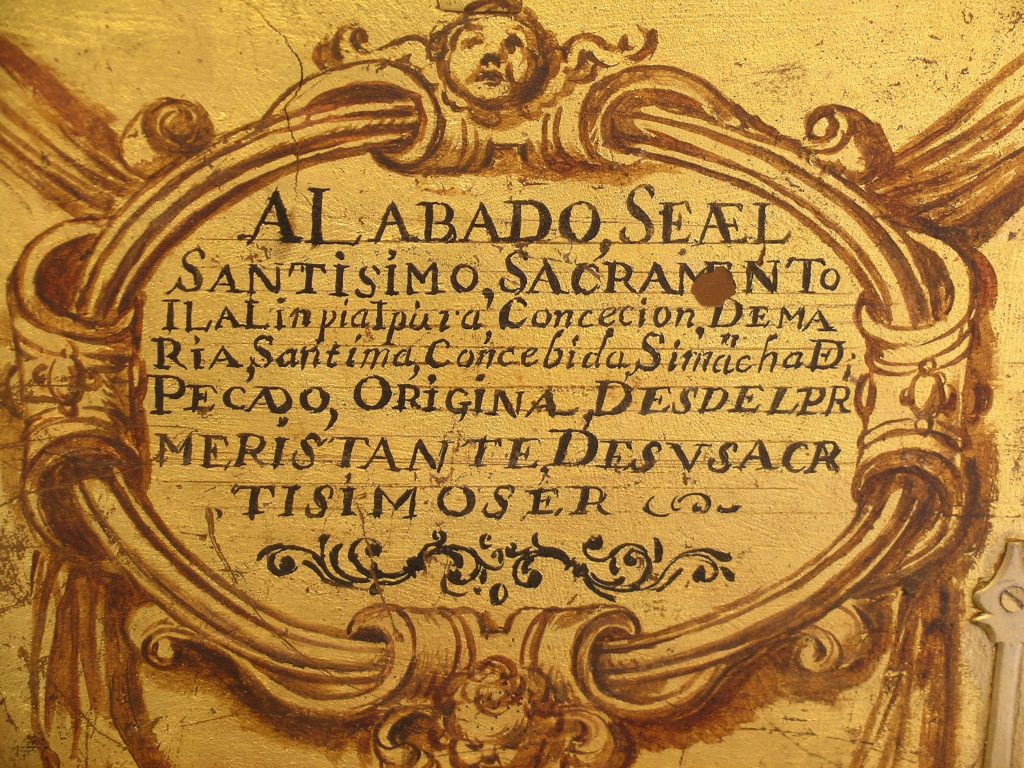 ALABADO, SEAEL
SANTISIMO, SACRAMENTO
ILALinpiaIpura, Concecion, DEMA
RIA, Santima, Concebida, Simācha D;
PECADO, ORIGINAL, DESDELPR
MERISTANTE, DESVSACR
TISIMOSER